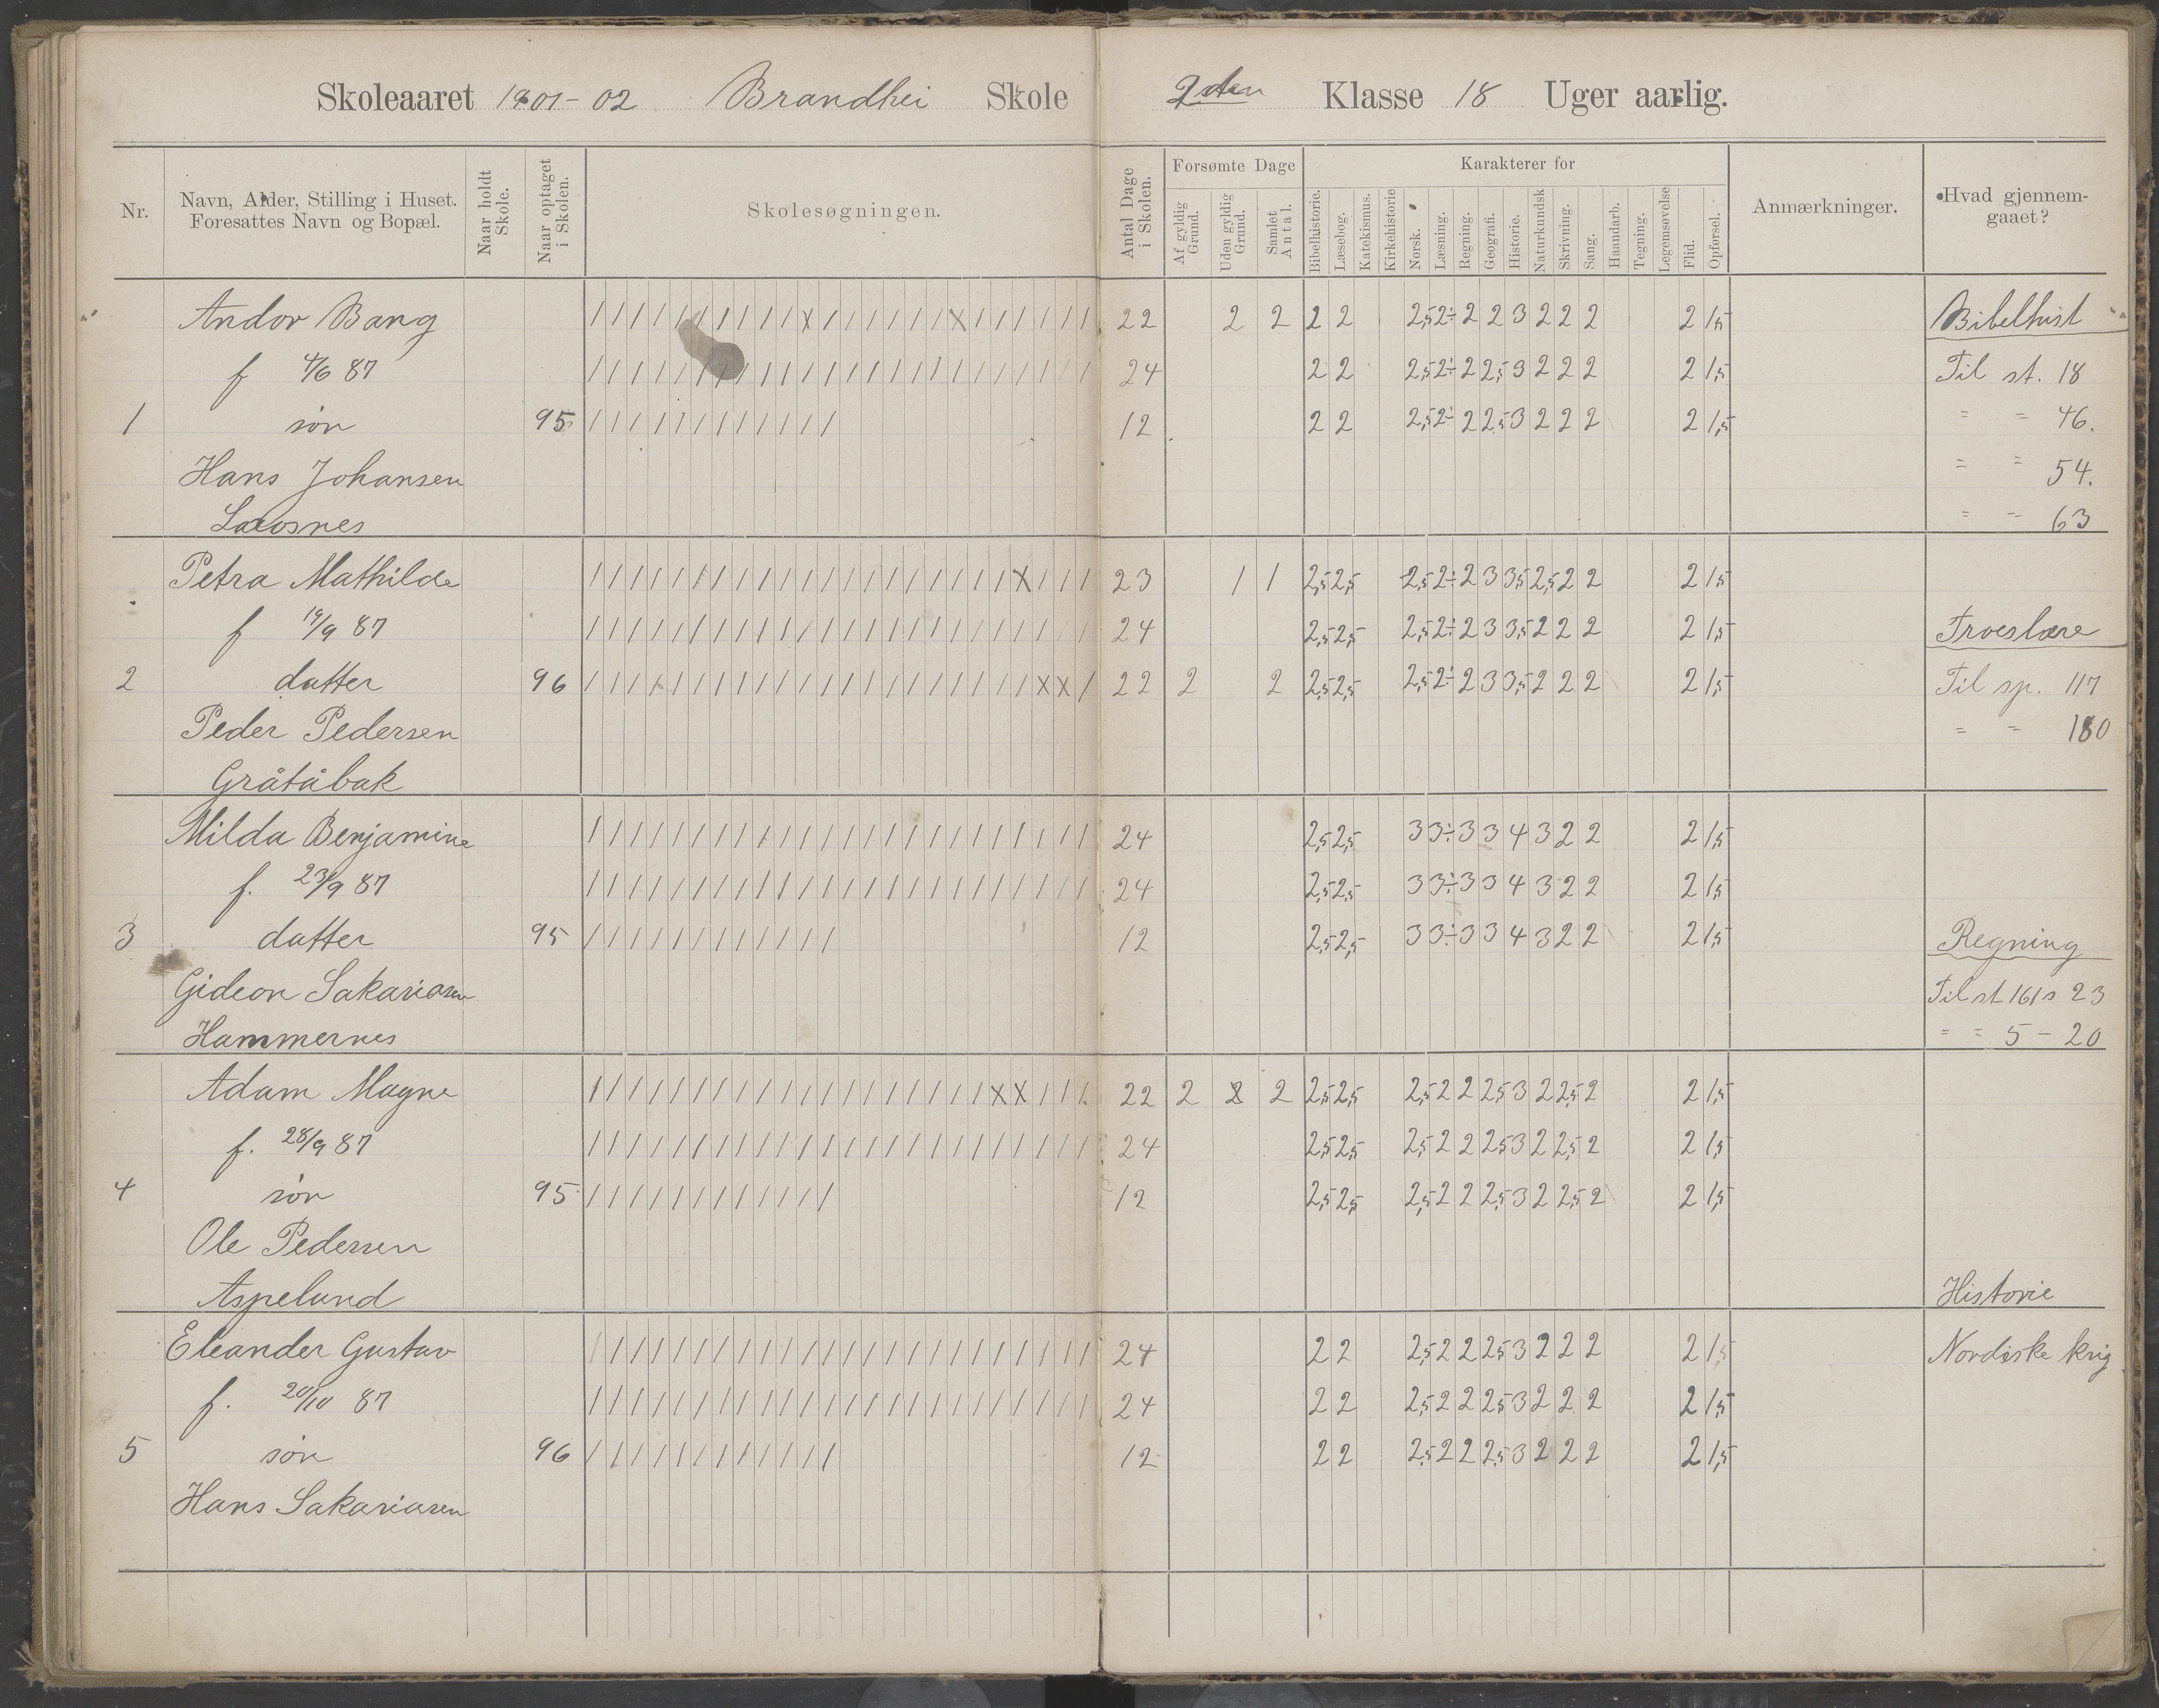 Skoleaaret 1901-02 Brandhei Skole 2den Klasse 18 Uger aarlig.
Nr.
Navn, Alder, Stilling i Huset. Foresattes Navn og Bopæl.
Naar holdt Skole.
Naar optaget i Skolen.
Skolesøgningen.
Antal Dage i Skolen.
Forsømte Dage
Af gyldig Grund.
Uden gyldig Grund.
Samlet Antal.
Karakterer for
Bibelhistorie.
Læsebog.
Katekismus.
Kirkehistorie
Norsk.
Læsning.
Regning.
Geografi.
Historie.
Naturkundsk
Skrivning.
Sang.
Haandarb.
Tegning.
Legemsøvelse
Flid.
Opførsel.
Anmærkninger.
Hvad gjennemgaaet?
Andor Bang 22 2 2 2 2 2,5 2÷ 2 2 3 2 2 2 2 1,5 Bibelhist
f 4/6 87 24 2 2 2,5 2÷ 2 2,5 3 2 2 2 2 1,5 Til st. 18
1 søn 95 12 2 2 2,5 2÷ 2 2,5 3 2 2 2 2 1,5 = = 46.
Hans Johansen = = 54.
= = 63
Petra Mathilde 23 1 1 2,5 2,5 2,5 2÷ 2 3 3,5 2,5 2 2 2 1,5
f 19/9 87 24 2,5 2,5 2,5 2÷ 2 3 3,5 2 2 2 2 1,5 Troeslære
2 datter 96 22 2 2 2,5 2,5 2,5 2÷ 2 3 3,5 2 2 2 2 1,5 Til sp. 117
Peder Pedersen = = 180
Gråtåbak
Milda Benjamine 24 2,5 2,5 3 3÷ 3 3 4 3 2 2 2 1,5
f. 23/9 87 24 2,5 2,5 3 3÷ 3 3 4 3 2 2 2 1,5
3 datter 95 12 2,5 2,5 3 3÷ 3 3 4 3 2 2 2 1,5 Regning
Gideon Sakariasen Til st 161 s 23
Hammernes = = 5 - 20
Adam Magne 22 2 2 2,5 2,5 2,5 2 2 2,5 3 2 2,5 2 2 1,5
f. 28/9 87 24 2,5 2,5 2,5 2 2 2,5 3 2 2,5 2 2 1,5
4 søn 95 12 2,5 2,5 2,5 2 2 2,5 3 2 2,5 2 2 1,5
Ole Pedersen
Aspelund Historie
Eleander Gustav 24 2 2 2,5 2 2 2,5 3 2 2 2 2 1,5 Nordiske krig
f. 20/10 87 24 2 2 2,5 2 2 2,5 3 2 2 2 2 1,5
5 søn 96 12 2 2 2,5 2 2 2,5 3 2 2 2 2 1,5
Hans Sakariasen